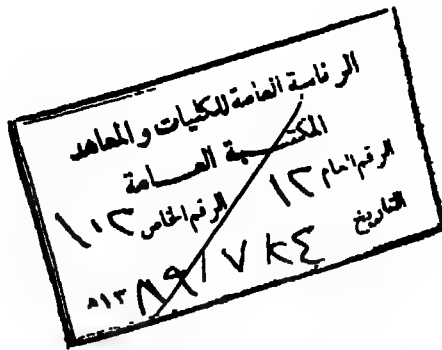 الرئاسة العامة للكليات والمعاهد
المكتبة العامة
الرقم العام ١٢ الرقم الخاص ١٠٢
التاريخ